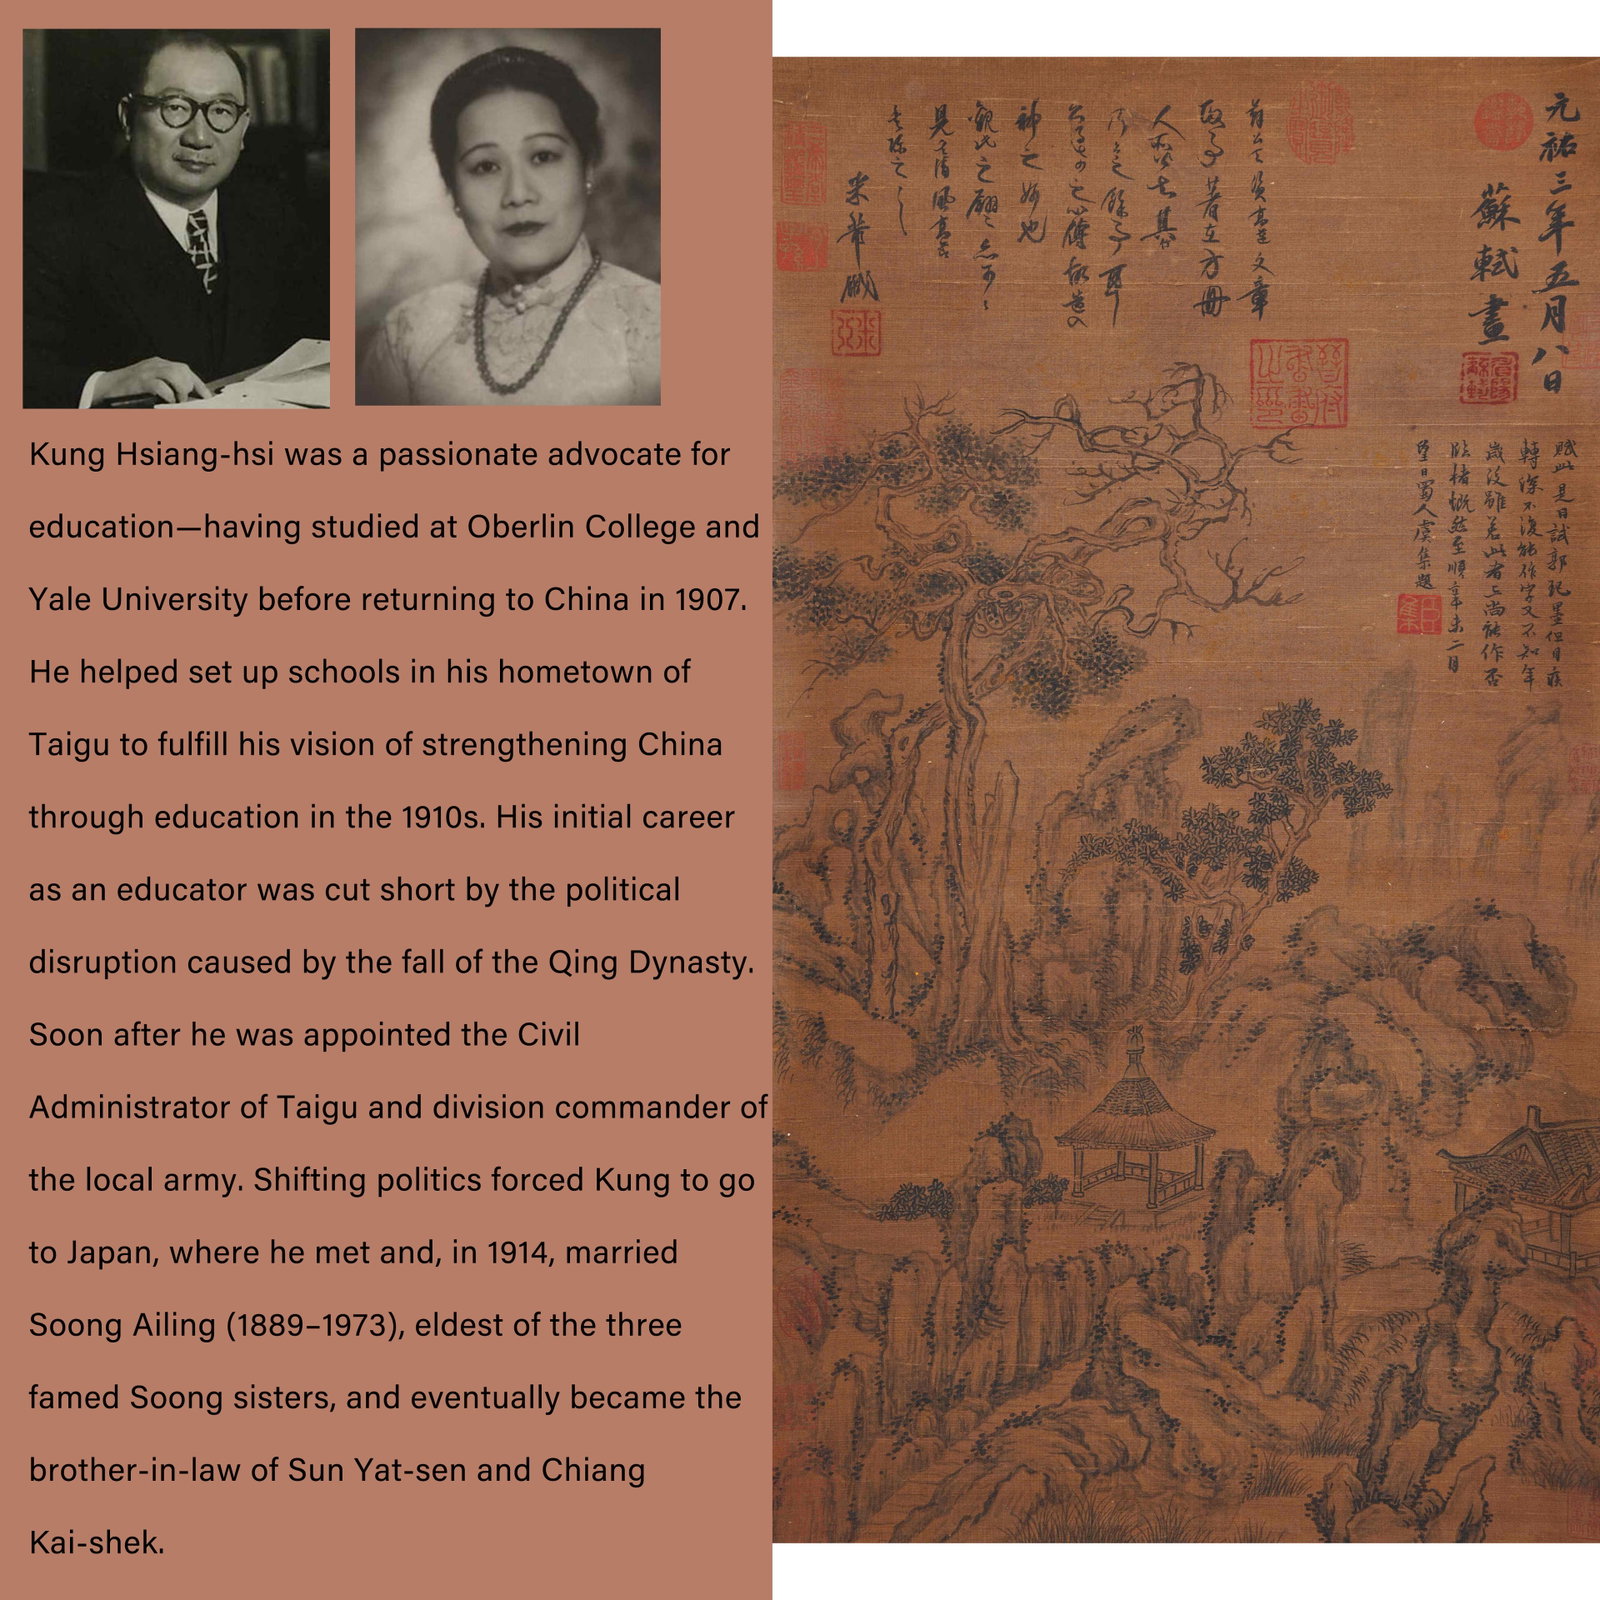 Kung Hsiang-hsi was a passionate advocate for
education—having studied at Oberlin College and
Yale University before returning to China in 1907.
He helped set up schools in his hometown of
Taigu to fulfill his vision of strengthening China
through education in the 1910s. His initial career
as an educator was cut short by the political
disruption caused by the fall of the Qing Dynasty.
Soon after he was appointed the Civil
Administrator of Taigu and division commander of
the local army. Shifting politics forced Kung to go
to Japan, where he met and, in 1914, married
Soong Ailing (1889–1973), eldest of the three
famed Soong sisters, and eventually became the
brother-in-law of Sun Yat-sen and Chiang
Kai-shek.
元祐三年五月八日
蘇軾畫
人
神之
觀此之
見清風高
米芾
賦此是日試郭玘墨但目疾
轉深不復能作字又不知年
歲後雖若此者尚能作否
臨楮慨然至順辛未二月
望日蜀人虞集題